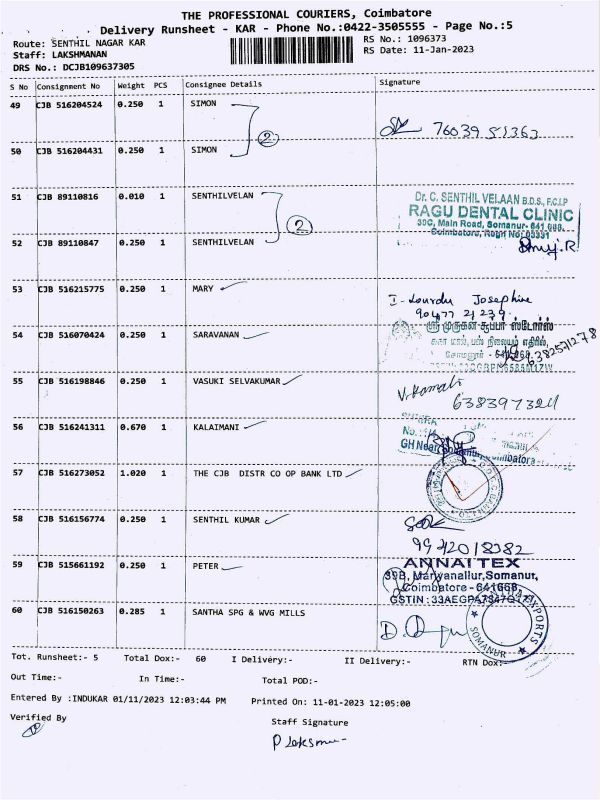 THE PROFESSIONAL COURIERS, Coimbatore
Delivery Runsheet - KAR - Phone No.:0422-3505555 - Page No.:5
Route: SENTHIL NAGAR KAR
RS No.: 1096373
Staff: LAKSHMANAN
RS Date: 11-Jan-2023
DRS No.: DCJB109637305
S No Consignment No Weight PCS Consignee Details Signature
49 CJB 516204524 0.250 1 SIMON
2
76039 51363
50 CJB 516204431 0.250 1 SIMON
51 CJB 89110816 0.010 1 SENTHILVELAN
2
Dr. C. SENTHIL VELAAN B.D.S., F.C.I.P
RAGU DENTAL CLINIC
39C, Main Road, Somanur- 641 668.
Coimbatore, Regn No: 03331
52 CJB 89110847 0.250 1 SENTHILVELAN
53 CJB 516215775 0.250 1 MARY
I - Lourdu Josephine
90477 21239
54 CJB 516070424 0.250 1 SARAVANAN
ஸ்ரீ முருகன் சூப்பர் ஸ்டோர்ஸ்
6382571278
55 CJB 516198846 0.250 1 VASUKI SELVAKUMAR
V. Kamali
6383973211
56 CJB 516241311 0.670 1 KALAIMANI
GH Near
Coimbatore-
57 CJB 516273052 1.020 1 THE CJB DISTR CO OP BANK LTD
58 CJB 516156774 0.250 1 SENTHIL KUMAR
9942018382
59 CJB 515661192 0.250 1 PETER
ANNAI TEX
39B, Marwanallur, Somanur,
Coimbatore - 641668.
GSTIN : 33AEGPA7347Q1Z
60 CJB 516150263 0.285 1 SANTHA SPG & WVG MILLS
EXPORTS
SOMANUR
Tot. Runsheet:- 5 Total Dox:- 60 I Delivery:- II Delivery:- RTN Dox:-
Out Time:- In Time:- Total POD:-
Entered By :INDUKAR 01/11/2023 12:03:44 PM Printed On: 11-01-2023 12:05:00
Verified By
Staff Signature